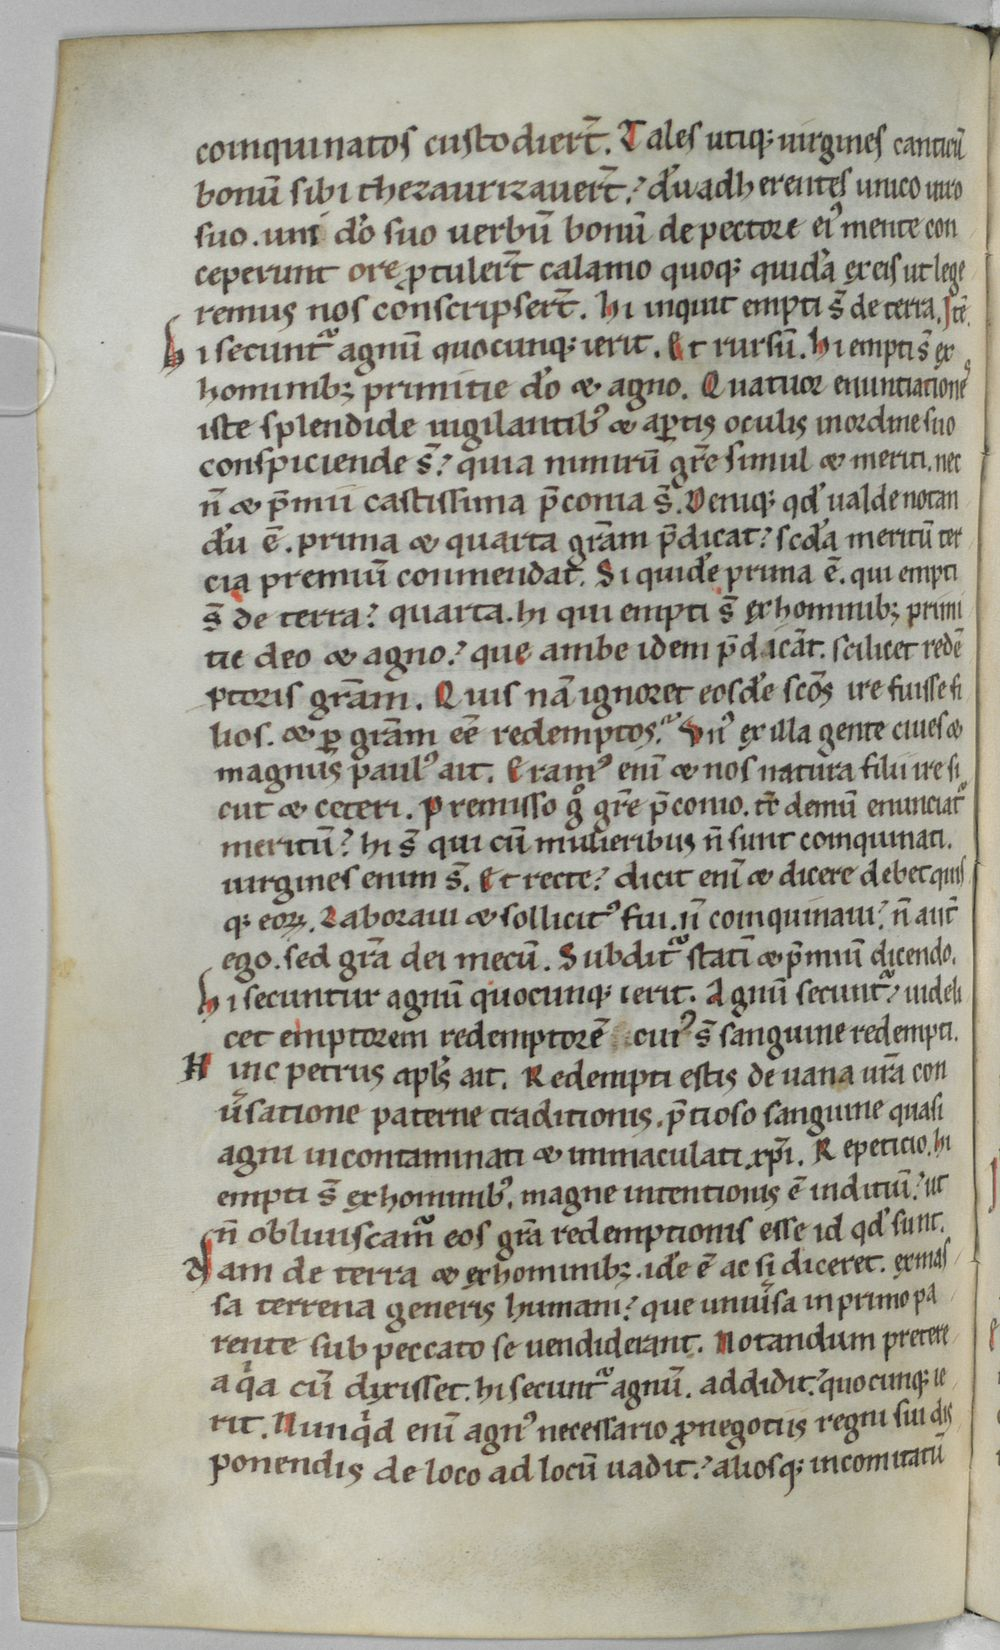 coinquinatos custodiert̄. Tales utiq; uirgines canticū
bonū sibi thezaurizauert̄. dū adherentes unico uiro
suo. uni dō suo uerbū bonū de pectore ei᾽ mente con
ceperunt ore ꝓtulert̄ calamo quoq; quidā ex eis ut lege
remus nos conscripsert̄. Hi inquit empti s̄ de terra. Itē.
hi secunt᷑ agnū quocunq; ierit. Et rursū. Hi empti s̄ ex
hominib; primitie dō & agno. Quatuor enuntiatione᾽
iste splendide uigilantib᾽ & aꝑtis oculis in ordine suo
conspiciende s̄. quia nimirū gr̄e simul & meriti. nec
n̄ & p̄mii castissima p̄conia s̄. Deniq; qd̄ ualde notan
dū ē. prima & quarta grām p̄dicat. scd̄a meritū ter
cia premiū conmendat. Si quidē prima ē. qui empti
s̄ de terra. quarta. hi qui empti s̄ ex hominib; primi
tie deo & agno. que ambe idem p̄dicāt. scilicet redē
ptoris grām. Quis nā ignoret eosdē scōs ire fuisse fi
lios. & ꝑ grām eē redemptos. Vn᾽ ex illa gente ciues &
magnus paul᾽ ait. Eram᾽ enī & nos natura filii ire si
cut & ceteri. Premisso gͦ gr̄e p̄conio. tc̄ demū enunciat᷑
meritū. hi s̄ qui cū mulieribus n̄ sunt coinquinati.
uirgines enim s̄. Et recte. dicit enī & dicere debet quis
q; eoꝝ. Laboraui & sollicit᾽ fui. n̄ coinquinaui. n̄ aut̄
ego. sed gr̄a dei mecū. Subdit᷑ statī & p̄miū dicendo.
hi secuntur agnū quocunq; ierit. Agnū secunt᷑. uideli
cet emptorem redemptorē cui᾽ s̄ sanguine redempti.
Hinc petrus apl̄s ait. Redempti estis de uana ur̄a con
ūsatione paterne traditionis. p̄tioso sanguine quasi
agni incontaminati & immaculati xp̄i. Repeticio. hi
empti s̄ ex hominib᾽. magne intentionis ē inditiū. ut
n̄ obliuiscam᷑ eos gr̄a redemptionis esse id qd̄ sunt.
Nam de terra & ex hominib;. idē ē ac si diceret. ex mas
sa terrena generis humani. que uniūsa in primo pa
rente sub peccato se uendiderant. Notandum pretere
a qͥa cū dixisset. hi secunt᷑ agnū. addidit. quocunq; ie
rit. Nunqͥd enī agn᾽ necessario ꝓ negotiis regni sui dis
ponendis de loco ad locū uadit. aliosq; in comitatū